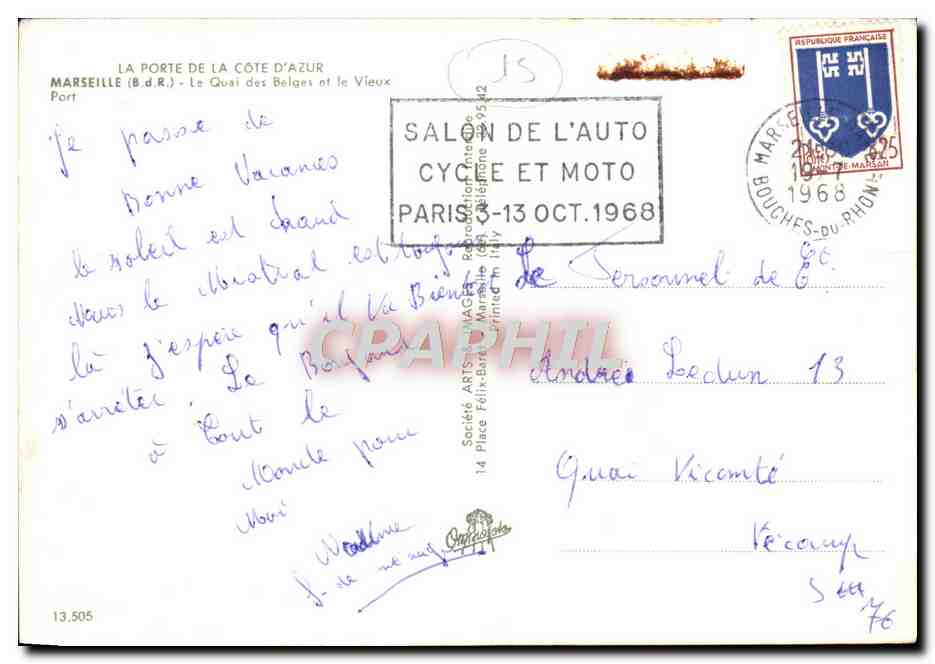 LA PORTE DE LA CÔTE D'AZUR
MARSEILLE (B.d.R.) - Le Quai des Belges et le Vieux
Port
Je passe de
Bonne Vacances
le soleil est Chaud
Mais le Mistral est toujours
là J'espère qu'il Va Bientôt
s'arrêter. Le Bonjour
à Tout le
Monde pour
Moi
Nadine
F. de ménage
13.505
15
SALON DE L'AUTO
CYCLE ET MOTO
PARIS 3-13 OCT. 1968
REPUBLIQUE FRANÇAISE
0,25
MONT-DE-MARSAN
MARSEILLE
1968
BOUCHES-DU-RHONE
Société ARTS & IMAGES - Reproduction Interdite
14 Place Félix-Baret - Marseille (6e) - Téléphone 33.95.42
Printed in Italy
CPAPHIL
Le Personnel de Ets
André Ledun 13
Quai Vicomté
Fécamp
S
76